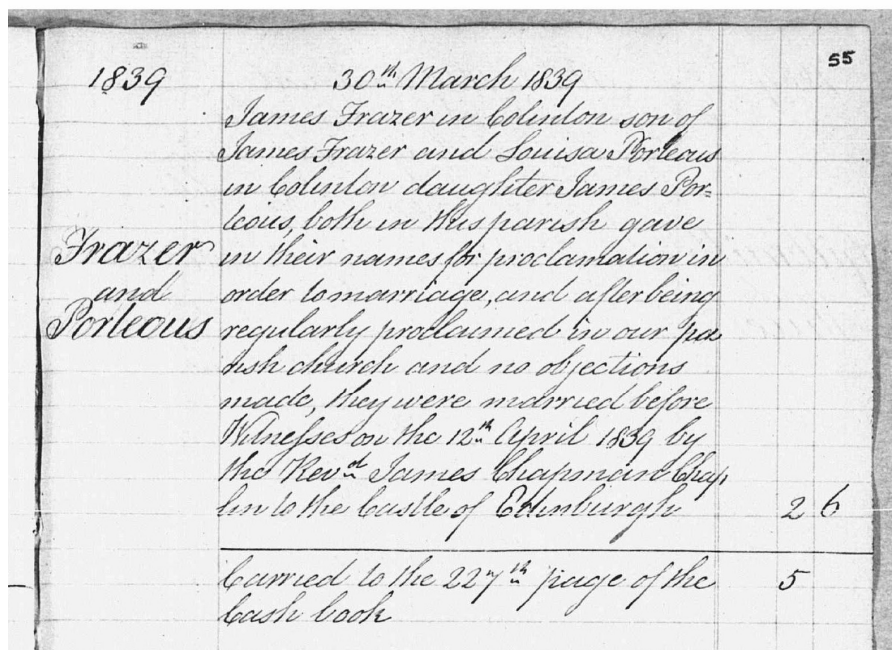 55
1839
30th March 1839
James Frazer in Colinton son of
James Frazer and Louisa Porteous
in Colinton daughter James Por=
teous, both in this parish gave
in their names for proclamation in
order to marriage, and after being
regularly proclaimed in our pa
rish church and no objections
made, they were married before
Witnesses on the 12th April 1839 by
the Revd James Chapman Chap
lin to the Castle of Edinburgh 2 6
Frazer
and
Porteous
Carried to the 227th page of the 5
Cash book